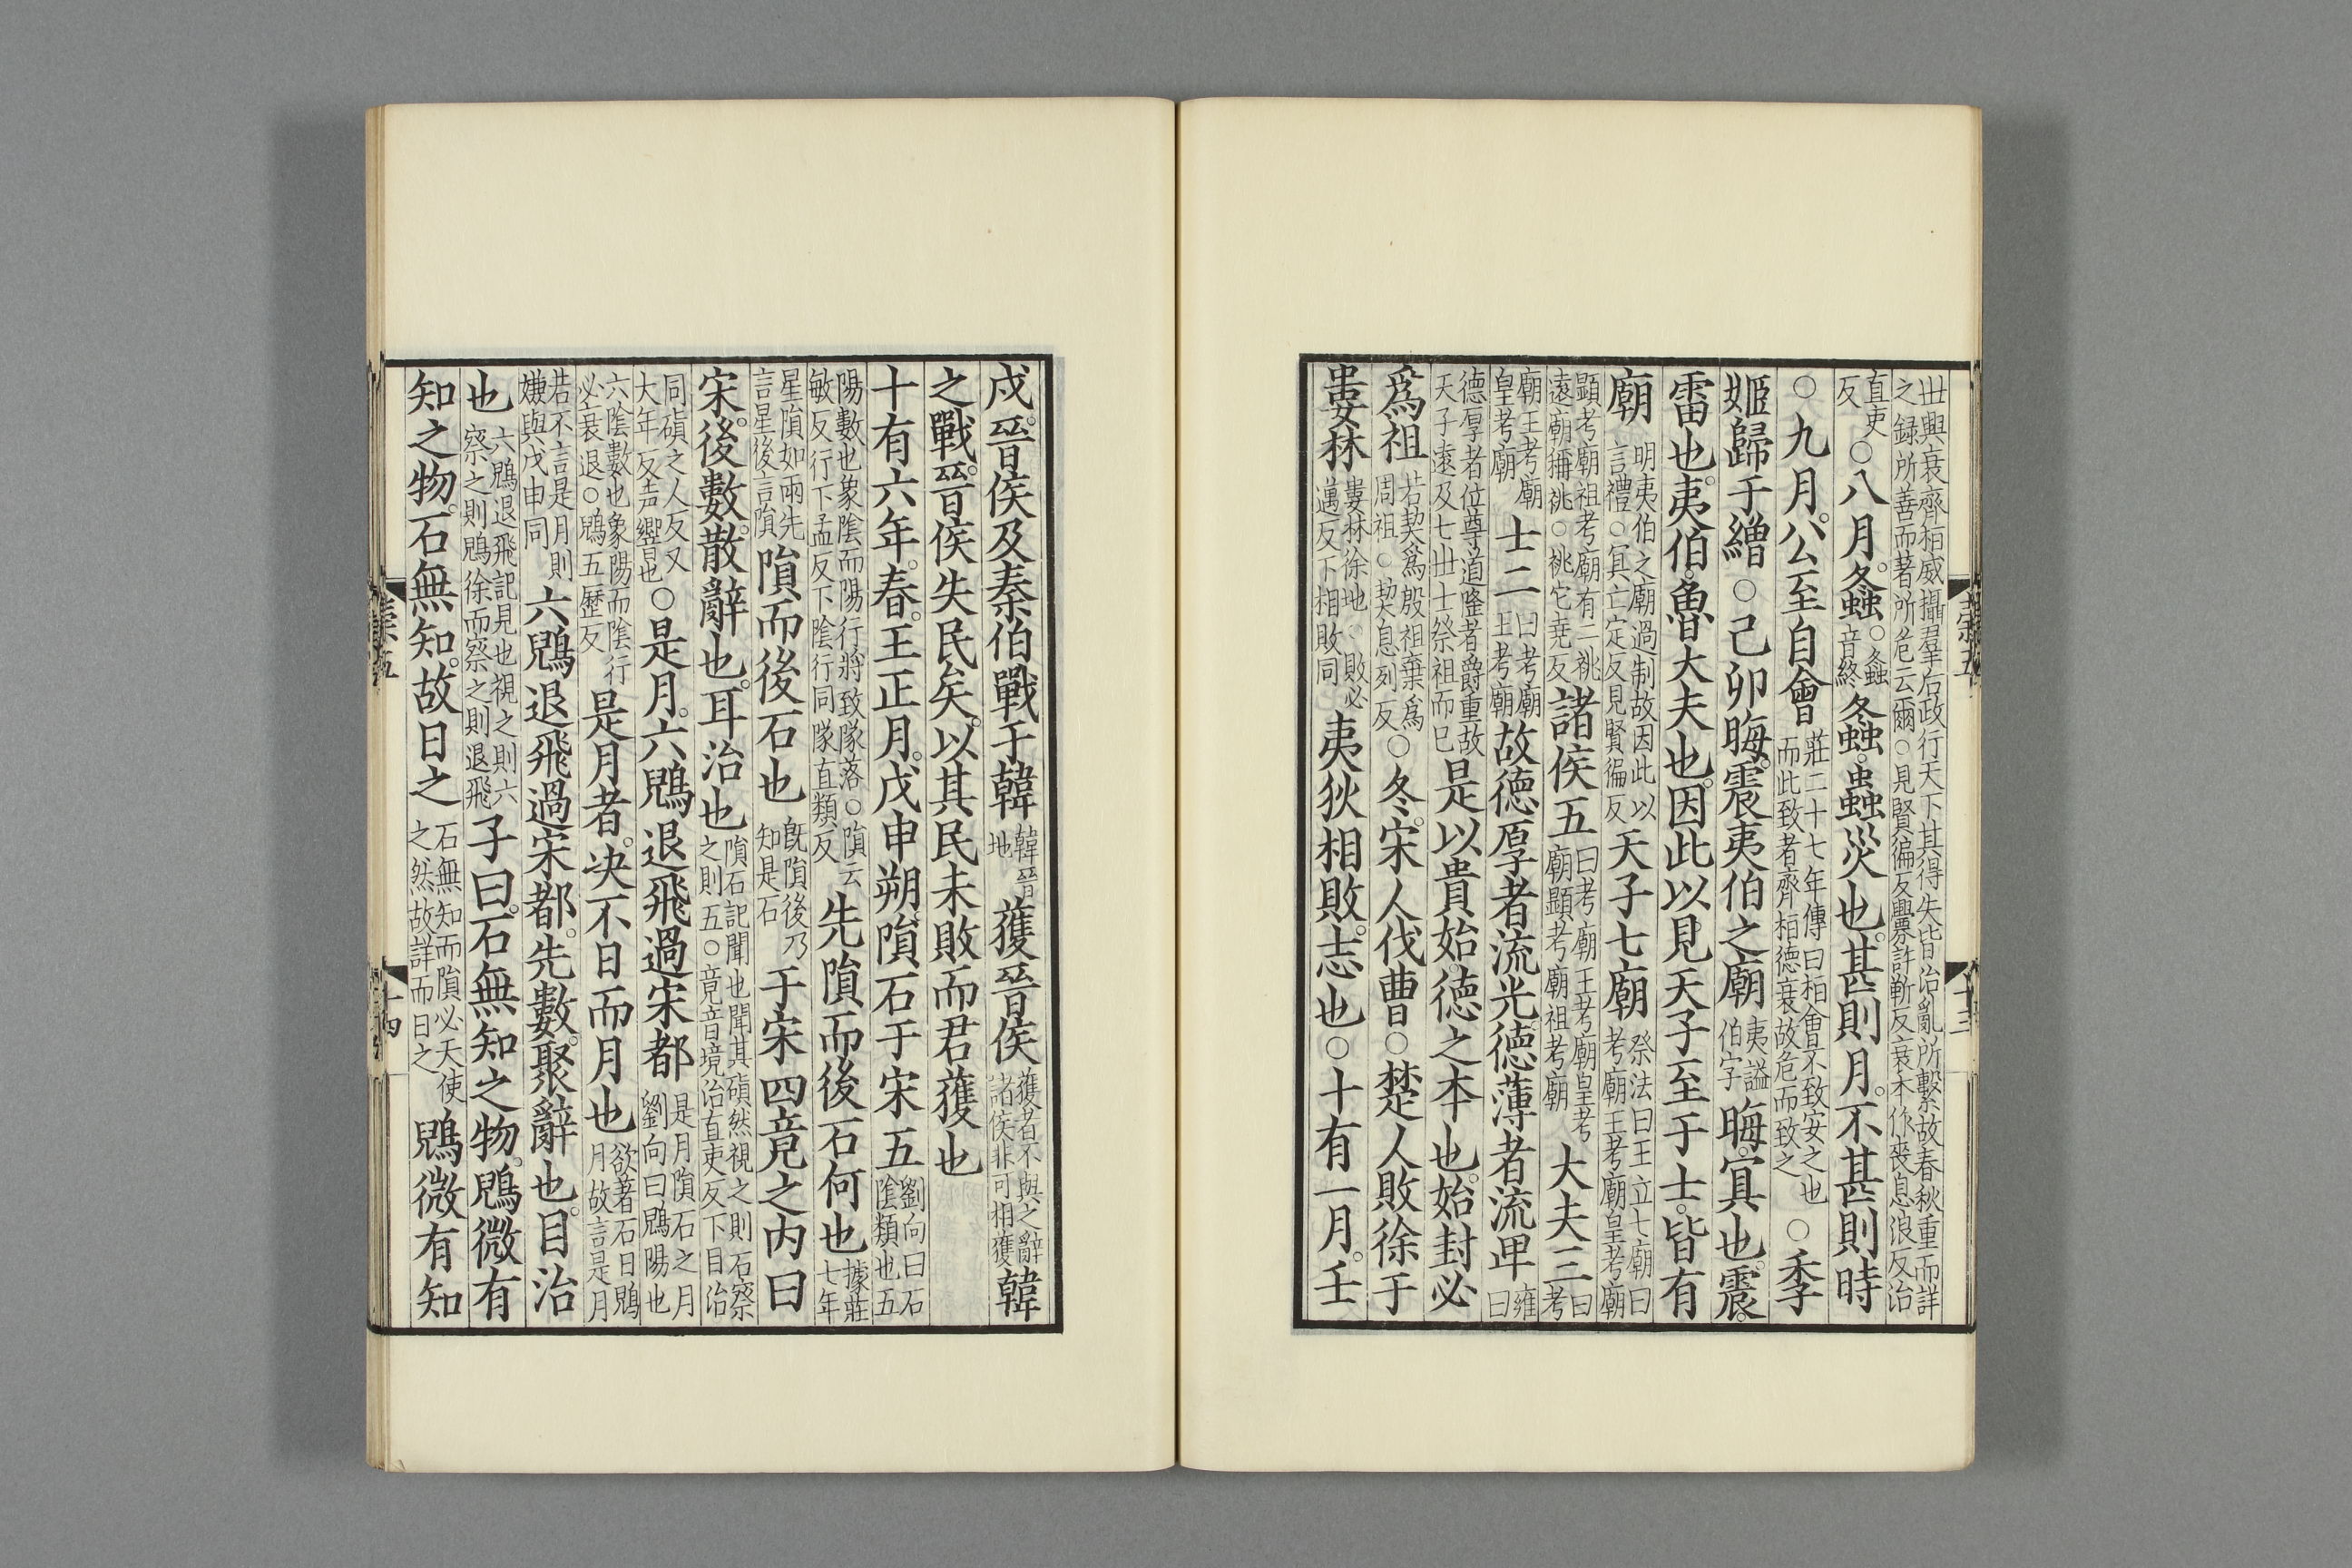 丗興衰齊桓威攝羣后政行天下其得失皆治亂所繫故春秋重而詳
之録所善而著所危云爾○見賢徧反譽許靳反衰本作衺息浪反治
直吏反○八月。螽○螽音終螽。蟲災也。甚則月。不甚則時
○九月。公至自會莊二十七年傳曰桓會不致安之也而此致者齊桓德衰故危而致之○季
姬歸于繒○己卯晦。震夷伯之廟夷謚伯字晦。冥也。震。
雷也。夷伯。魯大夫也。因此以見天子至于士。皆有
廟明夷伯之廟過制故因此以言禮○冥亡定反見賢徧反天子七廟祭法曰王立七廟曰考廟王考廟皇考廟
顯考廟祖考廟有二祧遠廟稱祧○祧它堯反諸侯五曰考廟王考廟皇考廟顯考廟祖考廟大夫三曰考
廟王考廟皇考廟士二曰考廟王考廟故德厚者流光。德薄者流卑雍曰
德厚者位尊道隆者爵重故天子遠及七丗士祭祖而已是以貴始。德之本也。始封必
爲祖若契爲殷祖棄爲周祖○契息列反○冬。宋人伐曹○楚人敗徐于
婁林婁林徐地○敗必邁反下相敗同夷狄相敗。志也○十有一月。壬
戌。晉侯及秦伯戰于韓韓晉地獲晉侯獲者不與之辭諸侯非可相獲韓
之戰。晉侯失民矣。以其民未敗而君獲也
十有六年。春。王正月。戊申朔。隕石于宋五劉向曰石陰類也五
陽數也象陰而陽行將致隊落○隕云敏反行下孟反下陰行同隊直類反先隕而後石何也據莊七年
星隕如雨先言星後言隕隕而後石也旣隕後乃知是石于宋四竟之内曰
宋。後數。散辭也。耳治也隕石記聞也聞其磌然視之則石察之則五○竟音境治直吏反下目治
同磌之人反又大年反声響也○是月。六鶂退飛過宋都是月隕石之月劉向曰鶂陽也
六陰數也象陽而陰行必衰退○鶂五歷反是月者。決不日而月也欲著石日鶂月故言是月
若不言是月則嫌與戊申同六鶂退飛過宋都。先數。聚辭也。目治
也六鶂退飛記見也視之則六察之則鶂徐而察之則退飛子曰。石無知之物。鶂微有
知之物。石無知。故日之石無知而隕必天使之然故詳而日之鶂微有知